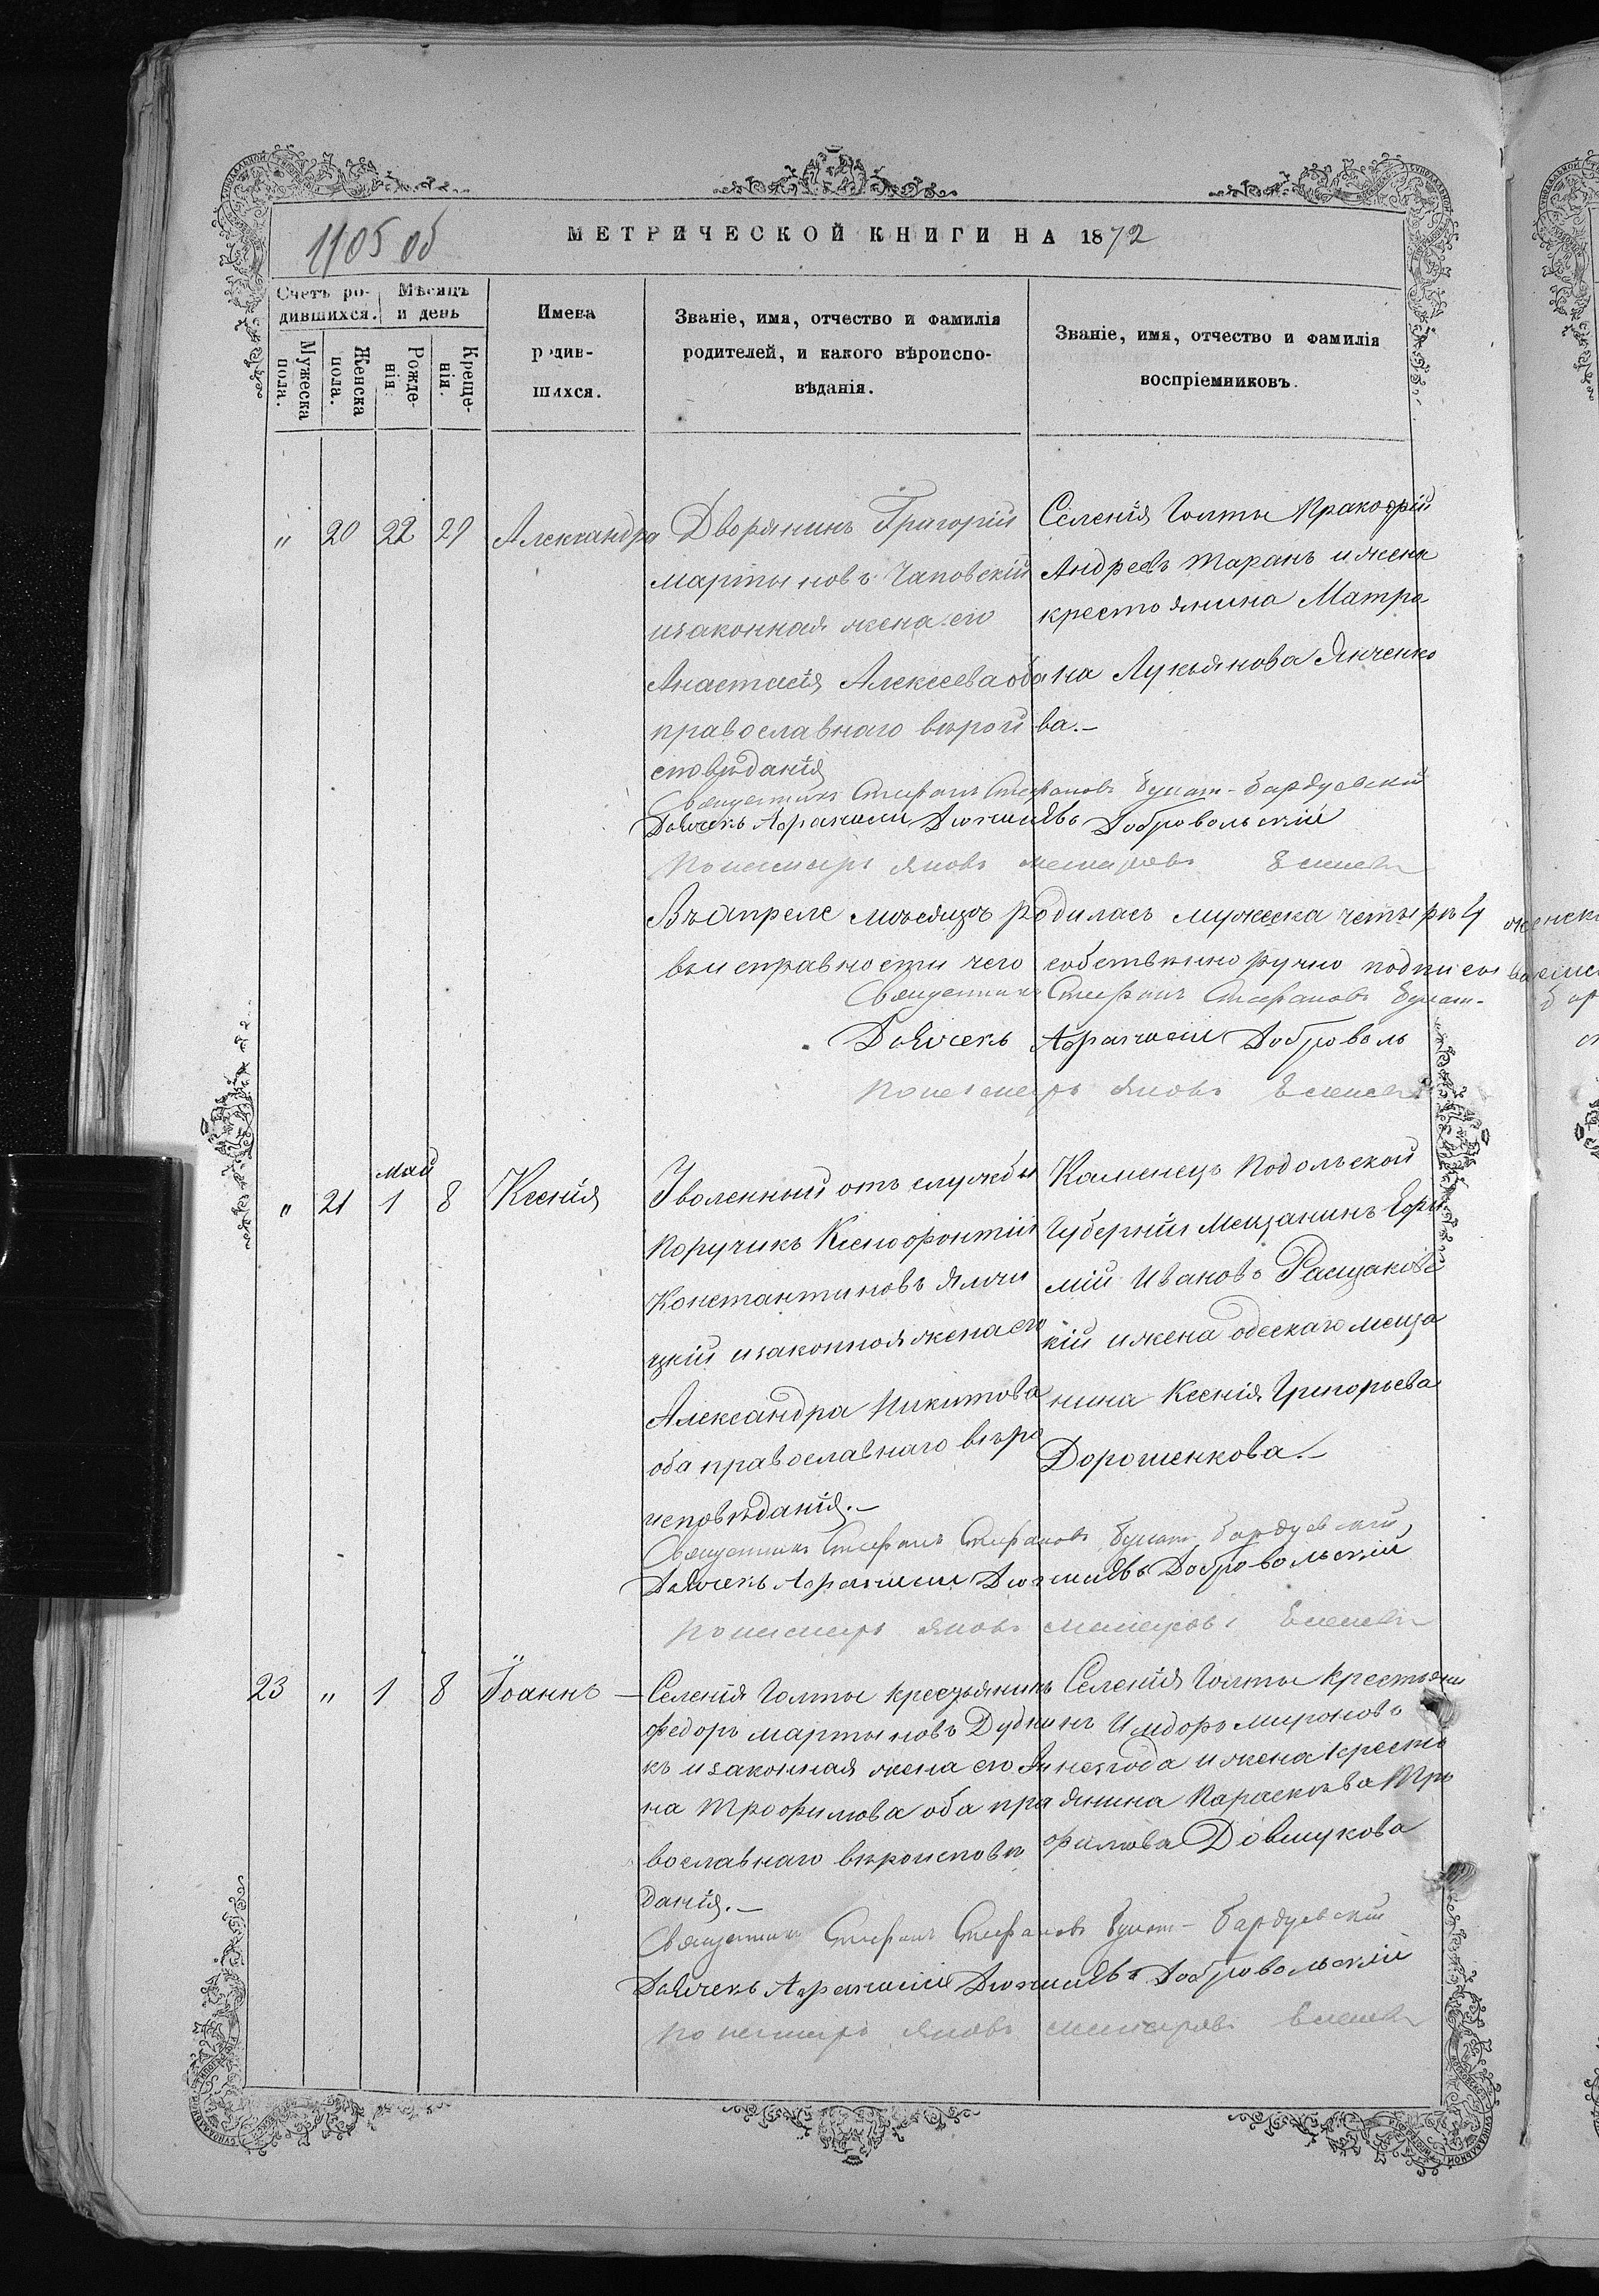 1105 об
МЕТРИЧЕСКОЙ КНИГИ НА 1872
Счетъ ро-
дившихся.
Мѣсяцъ
и день
Мужеска
пола.
Женска
пола.
Рожде-
нія.
Креще-
нія.
Имена
родив-
шихся.
Званіе, имя, отчество и фамилія
родителей, и какого вѣроиспо-
вѣданія.
Званіе, имя, отчество и фамилія
воспріемниковъ.
" 20 22 29 Александра
Дворянинъ Григорій
Мартыновъ Чаповскій
изаконная жена его
Анастасія Алексеева оба
православнаго вѣрои
споведанія
Селенія Голты Пракофій
Андреевъ Таранъ и жена
крестоянина Матро
на Лукьянова Янченко
ва.-
Священникъ Стефанъ Стефановъ Булат-Бардуевскій
Дьячекъ Афанасій Добровольскій
Пономарь Яковъ
Въ апреле месяцѣ родилась мужеска четырѣ 4 женска
выисправности чего собственно ручно подписываемся
Священникъ Стефанъ Стефановъ Булат-
Дьячекъ Афанасій Доброволь
Пономарь Яковъ
Май
" 21 1 8 Ксенія
Уволенный отъ службы
поручикъ Ксенофонтій
Константиновъ Ялчи
цкій изаконноя жена его
Александра Никитова
оба православнаго вѣро
исповѣданія.-
Каменецъ Подольской
Губерніи Мещанинъ Ефи
мій Ивановъ
кій и жена одескаго меща
нина Ксенія Григорьева
Дорошенкова.-
Священникъ Стефанъ Стефановъ Булат-Бардуевскій
Дьячекъ Афанасій Добровольскій
Пономарь Яковъ
23 " 1 8 Іоаннъ -
Селенія Голты крестьянинъ
Федоръ Мартыновъ Дудни
къ изаконная жена его Ан
на Трофимова оба пра
вославнаго вѣроисповѣ
данія.-
Селенія Голты Крестьяни
нъ Исидоръ Мироновъ
и жена Кресто
янина Параскѣва Тро
фимова Довмукова
Священникъ Стефанъ Стефановъ Булат-Бардуевскій
Дьячекъ Афанасій Добровольскій
Пономарь Яковъ